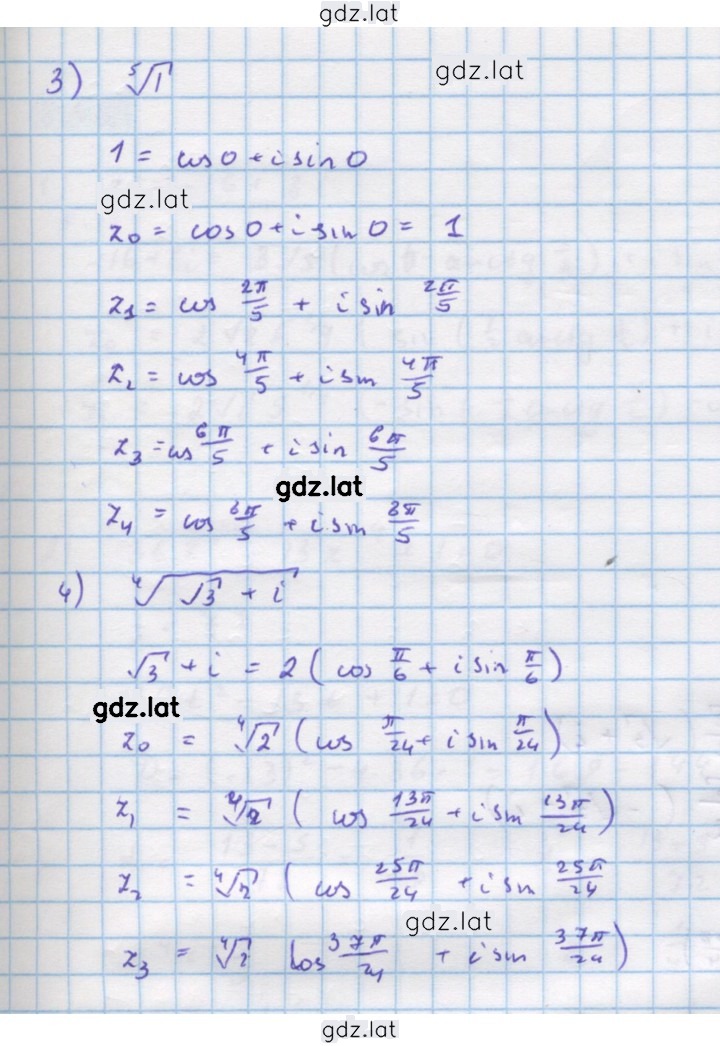 gdz.lat
3) ⁵√1
gdz.lat
1 = cos 0 + i sin 0
gdz.lat
z₀ = cos 0 + i sin 0 = 1
z₁ = cos 2π/5 + i sin 2π/5
z₂ = cos 4π/5 + i sin 4π/5
z₃ = cos 6π/5 + i sin 6π/5
gdz.lat
z₄ = cos 8π/5 + i sin 8π/5
4) ⁴√(√3 + i)
√3 + i = 2 (cos π/6 + i sin π/6)
gdz.lat
z₀ = ⁴√2 (cos π/24 + i sin π/24)
z₁ = ⁴√2 (cos 13π/24 + i sin 13π/24)
z₂ = ⁴√2 (cos 25π/24 + i sin 25π/24
gdz.lat
z₃ = ⁴√2 cos 37π/24 + i sin 37π/24)
gdz.lat